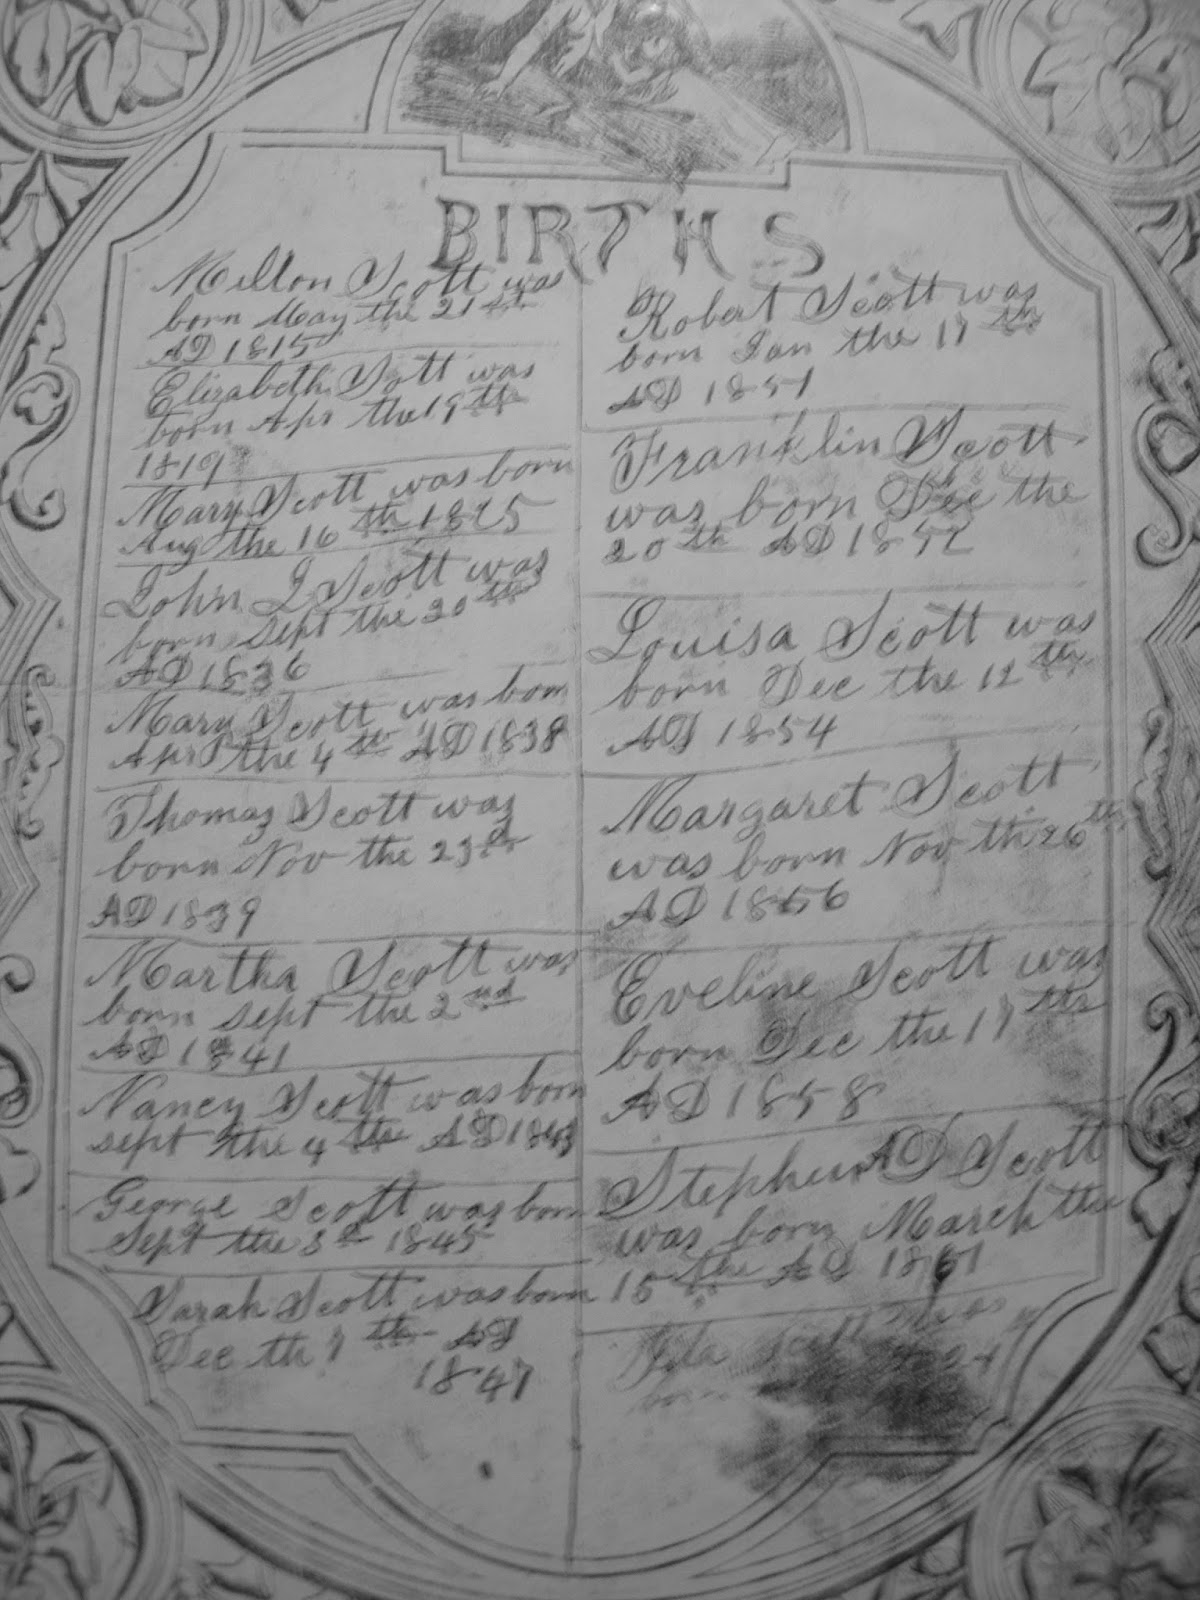 BIRTHS
Milton Scott was
born May the 21st
AD 1815
Elizabeth Scott was
born Apr the 19th
1819
Mary Scott was born
Aug the 16th 1825
John J Scott was
born Sept the 20th
AD 1836
Mary Scott was born
Apr the 4th AD 1838
Thomas Scott was
born Nov the 23rd
AD 1839
Martha Scott was
born sept the 2nd
AD 1841
Nancy Scott was born
sept the 4th AD 1843
George Scott was born
Sept the 3rd 1845
Sarah Scott was born
Dec th 7th AD
1847
Robert Scott was
born Jan the 17th
AD 1851
Franklin Scott
was born Dec the
20th AD 1852
Louisa Scott was
born Dec the 12th
AD 1854
Margaret Scott
was born Nov th 26th
AD 1856
Eveline Scott was
born Dec the 17th
AD 1858
Stephen AD Scott
was born March the
15th AD 1861
Ida Scott was
born